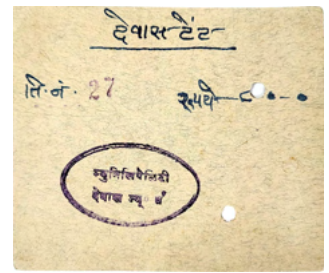 देवास टेंट
ति. नं. 27 रुपये ८-०-०
म्युनिसिपैलिटी
देवास